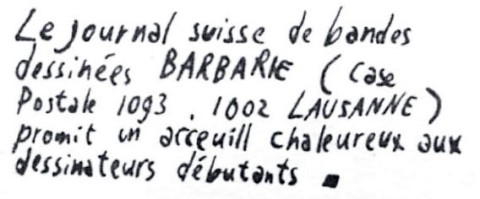 Le journal suisse de bandes
dessinées BARBARIE (Case
Postale 1093, 1002 LAUSANNE)
promit un acceuill chaleureux aux
dessinateurs débutants